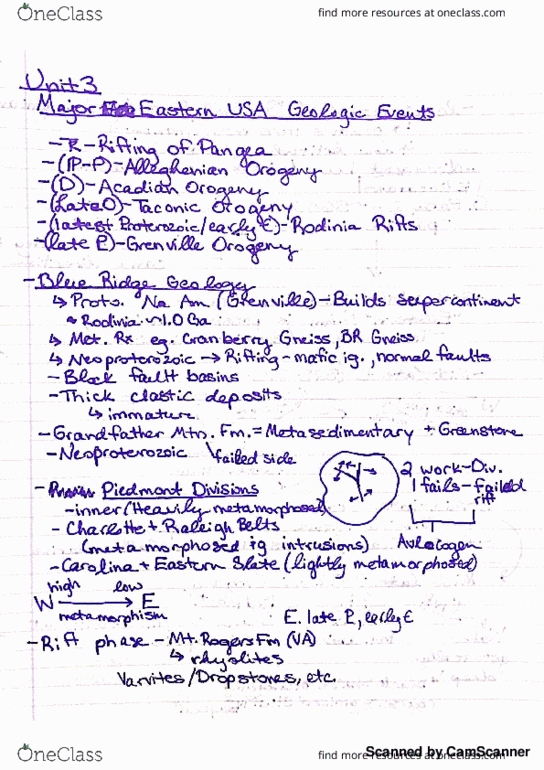 OneClass
find more resources at oneclass.com
Unit 3
Major Eastern USA Geologic Events
- Ŧ - Rifting of Pangea
- (IP-P) - Alleghenian Orogeny
- (D) - Acadian Orogeny
- (Late O) - Taconic Orogeny
- (latest Proterozoic/early Є) - Rodinia Rifts
- (late P) - Grenville Orogeny
- Blue Ridge Geology
↳ Proto. Na Am (Grenville) - Builds supercontinent
Rodinia ~1.0 Ga
↳ Met. Rx eg. Cranberry Gneiss, BR Gneiss
↳ Neoproterozoic → Rifting - mafic ig., normal faults
- Block fault basins
- Thick clastic deposits
↳ immature
- Grandfather Mtn. Fm. = Metasedimentary + Greenstone
- Neoproterozoic \failed side
2 work - Div.
1 fails - Failed rift
Aulocogen
- Piedmont Divisions
- inner (Heavily metamorphosed)
- Charlotte + Raleigh Belts
(metamorphosed ig intrusions)
- Carolina + Eastern Slate (lightly metamorphosed)
high low
W → E
metamorphism
E. late P, early Є
- Rift phase - Mt. Rogers Fm (VA)
↳ rhyolites
Varvites/Dropstones, etc.
OneClass
find more resources at oneclass.com
Scanned by CamScanner